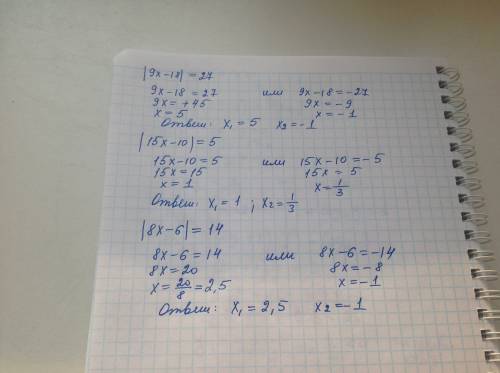 |9x-18| = 27
9x-18 = 27 или 9x-18 = -27
9x = +45 9x = -9
x = 5 x = -1
Ответ: x₁ = 5 x₂ = -1
|15x-10| = 5
15x-10 = 5 или 15x-10 = -5
15x = 15 15x = 5
x = 1 x = 1/3
Ответ: x₁ = 1 ; x₂ = 1/3
|8x-6| = 14
8x-6 = 14 или 8x-6 = -14
8x = 20 8x = -8
x = 20/8 = 2,5 x = -1
Ответ: x₁ = 2,5 x₂ = -1